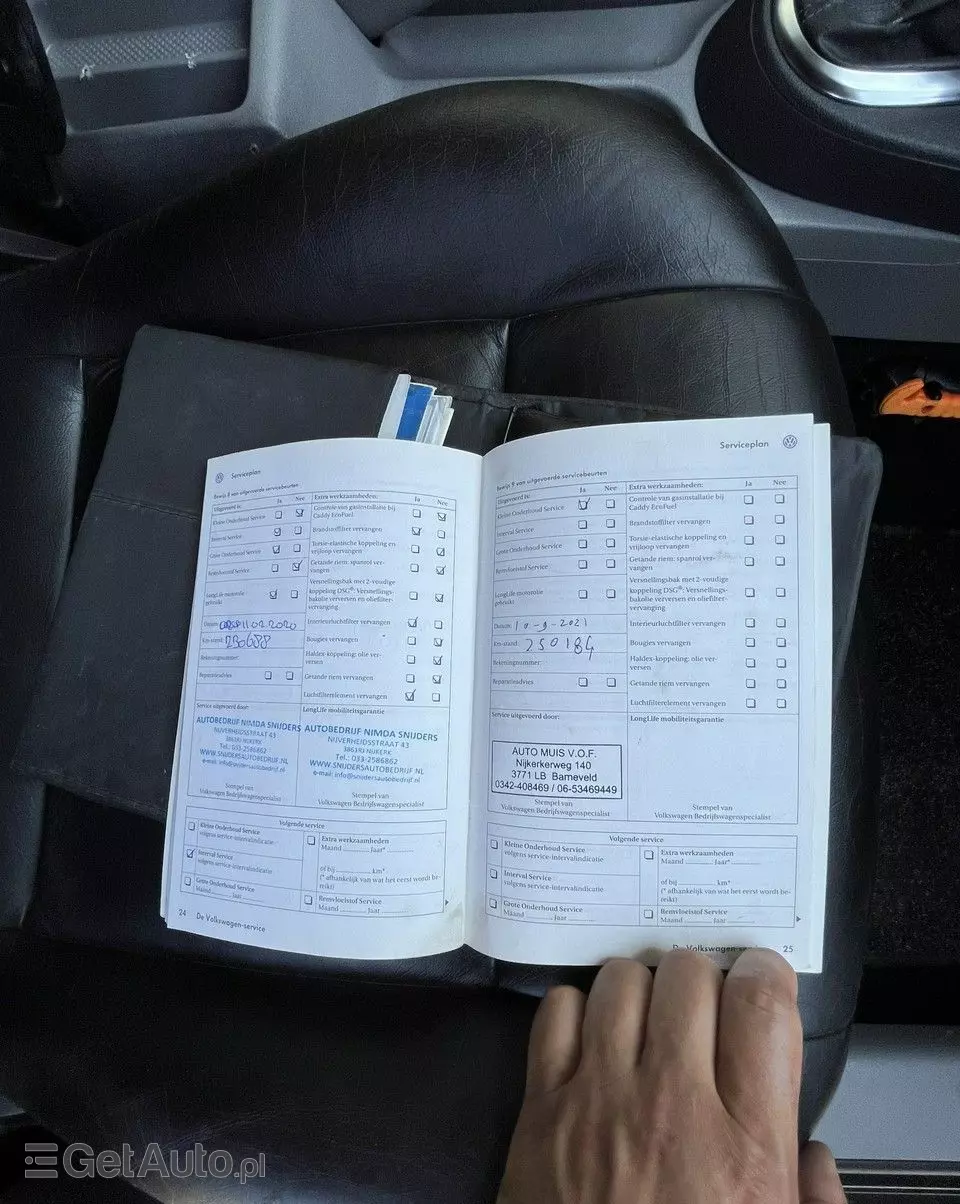 Serviceplan
Bewijs 8 van uitgevoerde servicebeurten
Uitgevoerd is:
Ja Nee
Kleine Onderhoud Service
Interval Service
Grote Onderhoud Service
Remvloeistof Service
LongLife motorolie
gebruikt
Datum: 11 02 2020
Km-stand: 230688
Rekeningnummer:
Reparatieadvies
Extra werkzaamheden:
Ja Nee
Controle van gasinstallatie bij
Caddy EcoFuel
Brandstoffilter vervangen
Torsie-elastische koppeling en
vrijloop vervangen
Getande riem: spanrol ver-
vangen
Versnellingsbak met 2-voudige
koppeling DSG®: Versnellings-
bakolie verversen en oliefilter-
vervanging
Interieurluchtfilter vervangen
Bougies vervangen
Haldex-koppeling: olie ver-
versen
Getande riem vervangen
Luchtfilterelement vervangen
Service uitgevoerd door:
AUTOBEDRIJF NIMDA SNIJDERS
NIJVERHEIDSSTRAAT 43
3861RJ NIJKERK
Tel.: 033-2586862
WWW.SNIJDERSAUTOBEDRIJF.NL
e-mail: info@snijdersautobedrijf.nl
Stempel van
Volkswagen Bedrijfswagenspecialist
LongLife mobiliteitsgarantie
AUTOBEDRIJF NIMDA SNIJDERS
NIJVERHEIDSSTRAAT 43
3861RJ NIJKERK
Tel.: 033-2586862
WWW.SNIJDERSAUTOBEDRIJF.NL
e-mail: info@snijdersautobedrijf.nl
Stempel van
Volkswagen Bedrijfswagenspecialist
Volgende service
Kleine Onderhoud Service
volgens service-intervalindicatie
Interval Service
volgens service-intervalindicatie
Grote Onderhoud Service
Maand Jaar
Extra werkzaamheden
Maand Jaar*
of bij km*
(* afhankelijk van wat het eerst wordt be-
reikt)
Remvloeistof Service
Maand Jaar
24 De Volkswagen-service
Serviceplan
Bewijs 9 van uitgevoerde servicebeurten
Uitgevoerd is:
Ja Nee
Kleine Onderhoud Service
Interval Service
Grote Onderhoud Service
Remvloeistof Service
LongLife motorolie
gebruikt
Datum: 10-9-2021
Km-stand: 250184
Rekeningnummer:
Reparatieadvies
Extra werkzaamheden:
Ja Nee
Controle van gasinstallatie bij
Caddy EcoFuel
Brandstoffilter vervangen
Torsie-elastische koppeling en
vrijloop vervangen
Getande riem: spanrol ver-
vangen
Versnellingsbak met 2-voudige
koppeling DSG®: Versnellings-
bakolie verversen en oliefilter-
vervanging
Interieurluchtfilter vervangen
Bougies vervangen
Haldex-koppeling: olie ver-
versen
Getande riem vervangen
Luchtfilterelement vervangen
Service uitgevoerd door:
AUTO MUIS V.O.F.
Nijkerkerweg 140
3771 LB Barneveld
0342-408469 / 06-53469449
Stempel van
Volkswagen Bedrijfswagenspecialist
LongLife mobiliteitsgarantie
Stempel van
Volkswagen Bedrijfswagenspecialist
Volgende service
Kleine Onderhoud Service
volgens service-intervalindicatie
Interval Service
volgens service-intervalindicatie
Grote Onderhoud Service
Maand Jaar
Extra werkzaamheden
Maand Jaar*
of bij km*
(* afhankelijk van wat het eerst wordt be-
reikt)
Remvloeistof Service
Maand Jaar
De Volkswagen-serv 25
GetAuto.pl